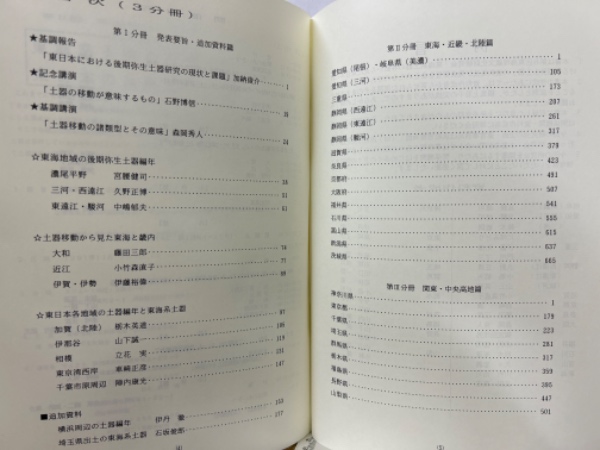 次（3分冊）
第Ⅰ分冊 発表要旨・追加資料篇
★基調報告
「東日本における後期弥生土器研究の現状と課題」加納俊介 1
★記念講演
「土器の移動が意味するもの」石野博信
★基調講演
「土器移動の諸類型とその意味」森岡秀人 24
☆東海地域の後期弥生土器編年
濃尾平野 宮腰健司 39
三河・西遠江 久野正博 51
東遠江・駿河 中嶋郁夫 61
☆土器移動から見た東海と畿内
大和 藤田三郎 74
近江 小竹森直子
伊賀・伊勢 伊藤裕偉
☆東日本各地域の土器編年と東海系土器 97
加賀（北陸） 栃木英道
伊那谷 山下誠一
相模 立花 実
東京湾西岸 車崎正彦
千葉市原周辺 大内康光
■追加資料
横浜周辺の土器編年 伊丹 徹
埼玉県出土の東海系土器 石坂俊郎
(4)
第Ⅱ分冊 東海・近畿・北陸篇
愛知県（尾張）・岐阜県（美濃） 1
愛知県（三河） 105
三重県 173
静岡県（西遠江） 207
静岡県（東遠江） 261
静岡県（駿河） 317
滋賀県 379
奈良県 431
京都府 487
大阪府 507
福井県 527
石川県 551
富山県 605
新潟県 635
茨城県 665
第Ⅲ分冊 関東・中央高地篇
神奈川県 1
東京都 91
千葉県 179
埼玉県 223
群馬県 291
栃木県 339
福島県 369
長野県 447
山梨県 501
(5)